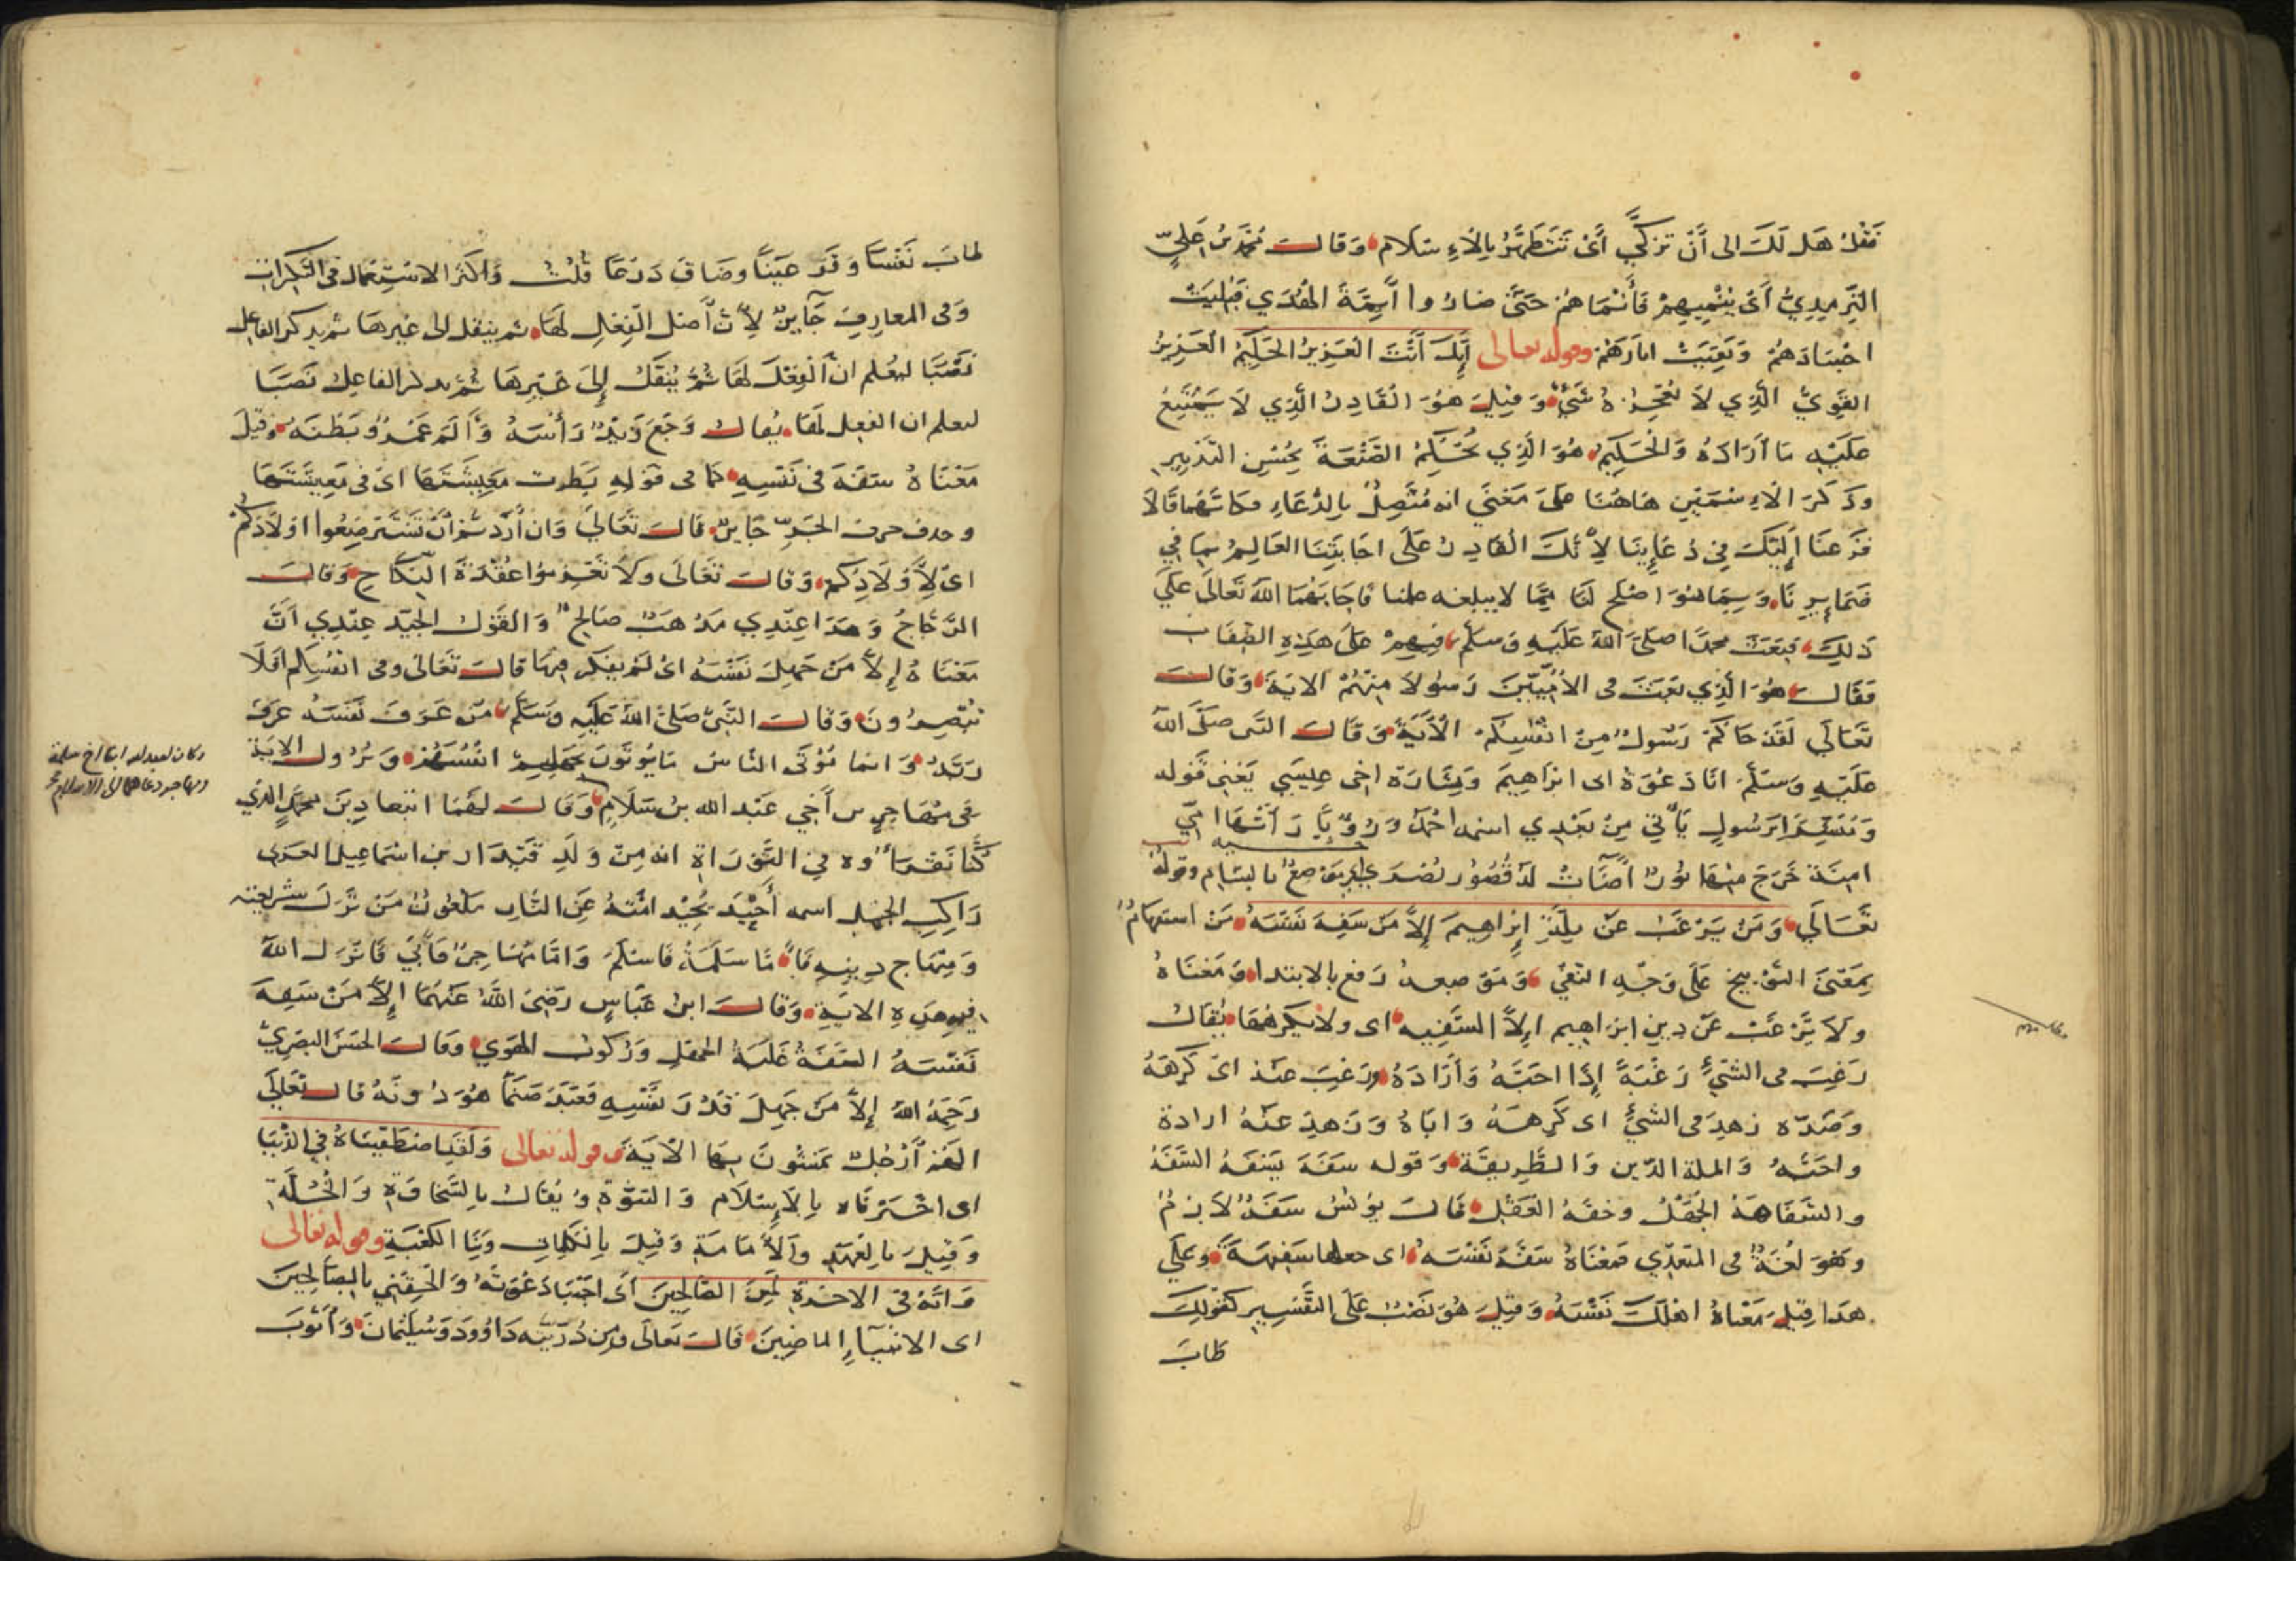 فَقُلْ هَل لَكَ الى أَنْ تزكَّى أَىْ تَتَطَهَّرُ بِالاءِسْلَام وَقَالَ مُحَمَّدُ بْنُ عَلِيٍّ
التِّرمِذِيُّ أَىْ يُنْمِيهِمْ فَأَنْمَاهُمْ حَتَّى صَارُوا أَيِمَّةَ الهُدَي فَبَلِيَتْ
اجْسَادَهُمْ وَبَقِيَتْ اثارَهُمْ وقوله تعالى إِنَّكَ أَنْتَ العَزِيزُ الحَكِيمُ العَزِيزُ
القَوِيُّ الَّذِي لَا يُعْجِزُهُ شَيْءٌ وَقِيلَ هُوَ القَادِرُ الَّذِي لَا يَمْتَنِعُ
عَلَيْهِ مَا أَرَادَهُ وَالحَكِيمُ هُوَ الَّذِي يُحْكِمُ الصَّنْعَةَ بِحُسْنِ التَّدْبِيرِ
وَذَكَرَ الاءِسْمَيْنِ هَاهُنَا عَلَى مَعْنَي انه مُتَّصِلٌ بِالدُّعَاءِ فكَانَّهُمَا قَالَا
فَزِعنَا إِلَيْكَ فِي دُعَايِنَا لِأَنَّكَ القَادِرُ عَلَى اجَابَتِنَا العَالِمُ بِمَا فِي
ضَمَايِرِنَا وَبِمَا هُوَ اصْلَح لَنَا مِمَّا لا يبلغه علمنا فَاجَابَهُمَا اللَّهُ تَعَالَى عَلَي
ذَلِكَ فَبَعَثَ محمدًا صَلَّى اللَّهُ عَلَيْهِ وَسَلَّمَ فِيهِمْ عَلَى هَذِهِ الصِّفَاتِ
فَقَالَ هُوَ الَّذِي بَعَثَ في الأُمِّيِّينَ رَسُولًا مِنْهُمْ الايَةَ وَقَالَ
تَعَالَي لَقَدْ جَاكُمْ رَسُولٌ مِنْ انْفُسِكُمْ الْآيَةَ وَقَالَ النَّبي صَلَّى اللَّهُ
عَلَيْهِ وَسَلَّمَ انَا دَعْوَةُ ابى ابْرَاهِيمَ وَبِشَارَة اخِي عِيسَي يَعْنِي قَوله
وَمُبَشِّرًا بِرَسُولٍ يَأْتِي مِنْ بَعْدِي اسمه احْمَدُ وَرُؤْيَا رَأَتْهَا امِّي
امِنَةَ خَرَجَ مِنْهَا نُورٌ أَضَاتْ لَهُ قُصُور بُصْرَى وَهِيَ مَوْضِعٌ بالشام وقوله
تَعَالَي وَمَنْ يَرْغَبُ عَنْ مِلَّةِ إِبْرَاهِيمَ إِلَّا مَنْ سَفِهَ نَفْسَهُ مَنْ استفهامٌ
بِمَعْنَي التَّوْبِيخ عَلَى وَجْهِ النَّفْيِ وَمَوْضِعه رَفع بالابتدا وَمَعْنَاهُ
ولَا يَرْغَبُ عَنْ دِينِ ابْرَاهِيم إِلَّا السَّفِيه اى ولا يَكْرَهُهَا يُقَالُ
رَغِبَ في الشَّيْءِ رَغْبَةً إِذَا احَبَّهُ وَأَرَادَهُ ورَغِبَ عَنْهُ اىْ كَرِهَهُ
وَضِدّه زهِدَ في الشيْءِ اى كَرِهَهُ وَابَاهُ وَزَهِدَ عَنْهُ ارادة
واحَبَّهُ وَالملة الدّين وَالطَّرِيقَة وَقوله سَفِهَ يَسْفَهُ السَّفَهُ
والسَّفَاهَةُ الجَهْلُ وخفَّةُ العَقْلِ قَالَ يُونُسُ سَفِهَ لَازِمٌ
وَهُوَ لُغَةٌ في المتعدِّي فَمَعْنَاهُ سَفَّهَ نَفْسَهُ اى جعلها سَفِيهَةً وَعَلَي
هذا قِيلَ مَعْنَاهُ اهْلَكَ نَفْسَهُ وَقِيلَ هُوَ نَصْبٌ عَلَى التَّفْسِيرِ كَقَوْلِكَ
طَابَ
طابَ نَفْسًا وَقَرَّ عَيْنًا وضَاقَ ذَرْعًا قُلْتُ وَاكثَرُ الاسْتِعْمَال في النَّكِرَاتِ
وَفي المعارِفِ جَآيِزٌ لِأَنَّ أَصْلَ الفِعْلِ لَهَا ثم ينقل الى غيرهَا ثم يذكر الفاعل
نَصْبًا ليُعْلم انَّ الفِعْلَ لَهَا ثُمَّ يُنْقَلُ إِلَى غَيْرِهَا ثُمَّ يذكر الفاعِلُ نَصبًا
ليعلم ان الفعل لَهَا يُقالُ وَجِعَ زَيْدٌ رَأْسَهُ وَأَلِمَ عَمْرٌو بَطْنَهُ وَقِيلَ
مَعْنَاهُ سَفِهَ في نَفْسِهِ كَمَا في قَوْلِهِ بَطِرَت مَعِيشَتَهَا اىْ في مَعِيشَتِهَا
وحذف حرف الجَرِّ جَايزٌ قَالَ تَعَالَى وَان أَرَدتُمْ أَنْ تَسْتَرْضِعُوا اوْلَادَكُمْ
اىْ لِأَوْلَادِكُم وَقَالَ تَعَالَى ولا تَعْزِمُوا عُقْدَةَ النِّكَاحِ وَقَالَ
الزَّجَّاجُ وَهَذَا عِنْدِي مَذْهَبٌ صَالِحٌ وَالقَوْلُ الجَيِّد عِنْدِي أَنَّ
مَعْنَاهُ إِلَّا مَنْ جَهِلَ نَفْسَهُ اىْ لَمْ يفكر فِيهَا قَالَ تَعَالَى وفى انفُسِكُم افَلَا
تُبْصِرُونَ وَقَالَ النَّبِيّ صَلَّى اللَّهُ عَلَيْهِ وَسَلَّمَ مَنْ عَرَفَ نَفْسَهُ عَرَفَ
رَبَّهُ وَانما يُؤْتَى النَّاسُ مَا يُؤتَوْنَ بِجَهْلِهِمْ انْفُسَهُمْ وَنُزُول الايَة
في مُهَاجِرِ بن أَخِي عَبْد الله بن سَلَامٍ وَقَالَ لَهُمَا اتبعا دِينَ مُحَمَّدٍ الذي
كُنَّا نَقْرَأُوه فِي التَّوْرَاةِ انه مِنْ وَلَدِ قَيْدَار بن اسْمَاعِيل العَرَبي
رَاكِبِ الجَمَل اسمه أُحَيْدَ يُحِيْدُ امَّتهُ عَنِ النَّارِ مَلْعُونٌ مَنْ تَرَكَ شَرِيعَتَه
وَمِنْهَاج دِينِهِ فَأَمَّا سَلَمَةُ فَاسْلَمَ وَامَّا مُهَاجِرٌ فَأَبَى فَانْزَلَ اللَّهُ
فيه هَذِهِ الايَة وَقَالَ ابن عَبَّاسٍ رَضِيَ اللَّهُ عَنْهُمَا إِلَّا مَنْ سَفِهَ
نَفْسَهُ السَّفَهُ غَلَبَةُ الجهلِ وَرُكُوبُ الهَوَي وَقَالَ الحَسَنُ البَصْرِيُّ
رَحِمَهُ اللَّهُ إِلَّا مَنْ جَهِلَ قَدْرَ نَفْسِهِ فَعَبَدَ صَنَمًا هُوَ دُونَهُ قَالَ تَعَالَى
أَلَهُمْ أَرْجُلٌ يَمْشُونَ بِهَا الْآيَةَ وقوله تعالى وَلَقَدِ اصْطَفَيْنَاهُ فِي الدُّنْيَا
اى اخْتَرْنَاه بِالإِسْلَام وَالنبُوَّةِ وَيُقَالُ بِالسَّخَاوَةِ وَالخُلَّةِ
وَقِيلَ بِالعَهْدِ وَالأَمَامَةِ وَقِيلَ بِالكَلِمَاتِ وَبِنَا الكَعْبَةِ وقوله تعالى
وَانَّهُ في الاخرَةِ لَمِنَ الصَّالِحِينَ أَى اجْتَبَا دَعْوَتَهُ وَأَلْحِقْنِي بِالصَّالِحِينَ
اى الانْبِيَآءِ الماضِينَ قَالَ تَعَالَى وَمِن ذُرِّيَّتِه دَاوُودَ وَسُلَيْمَانَ وَأَيُّوبَ
وكان لعبد الله ابنا اخ سلمة
ومهاجر دعاهما الى الاسلام